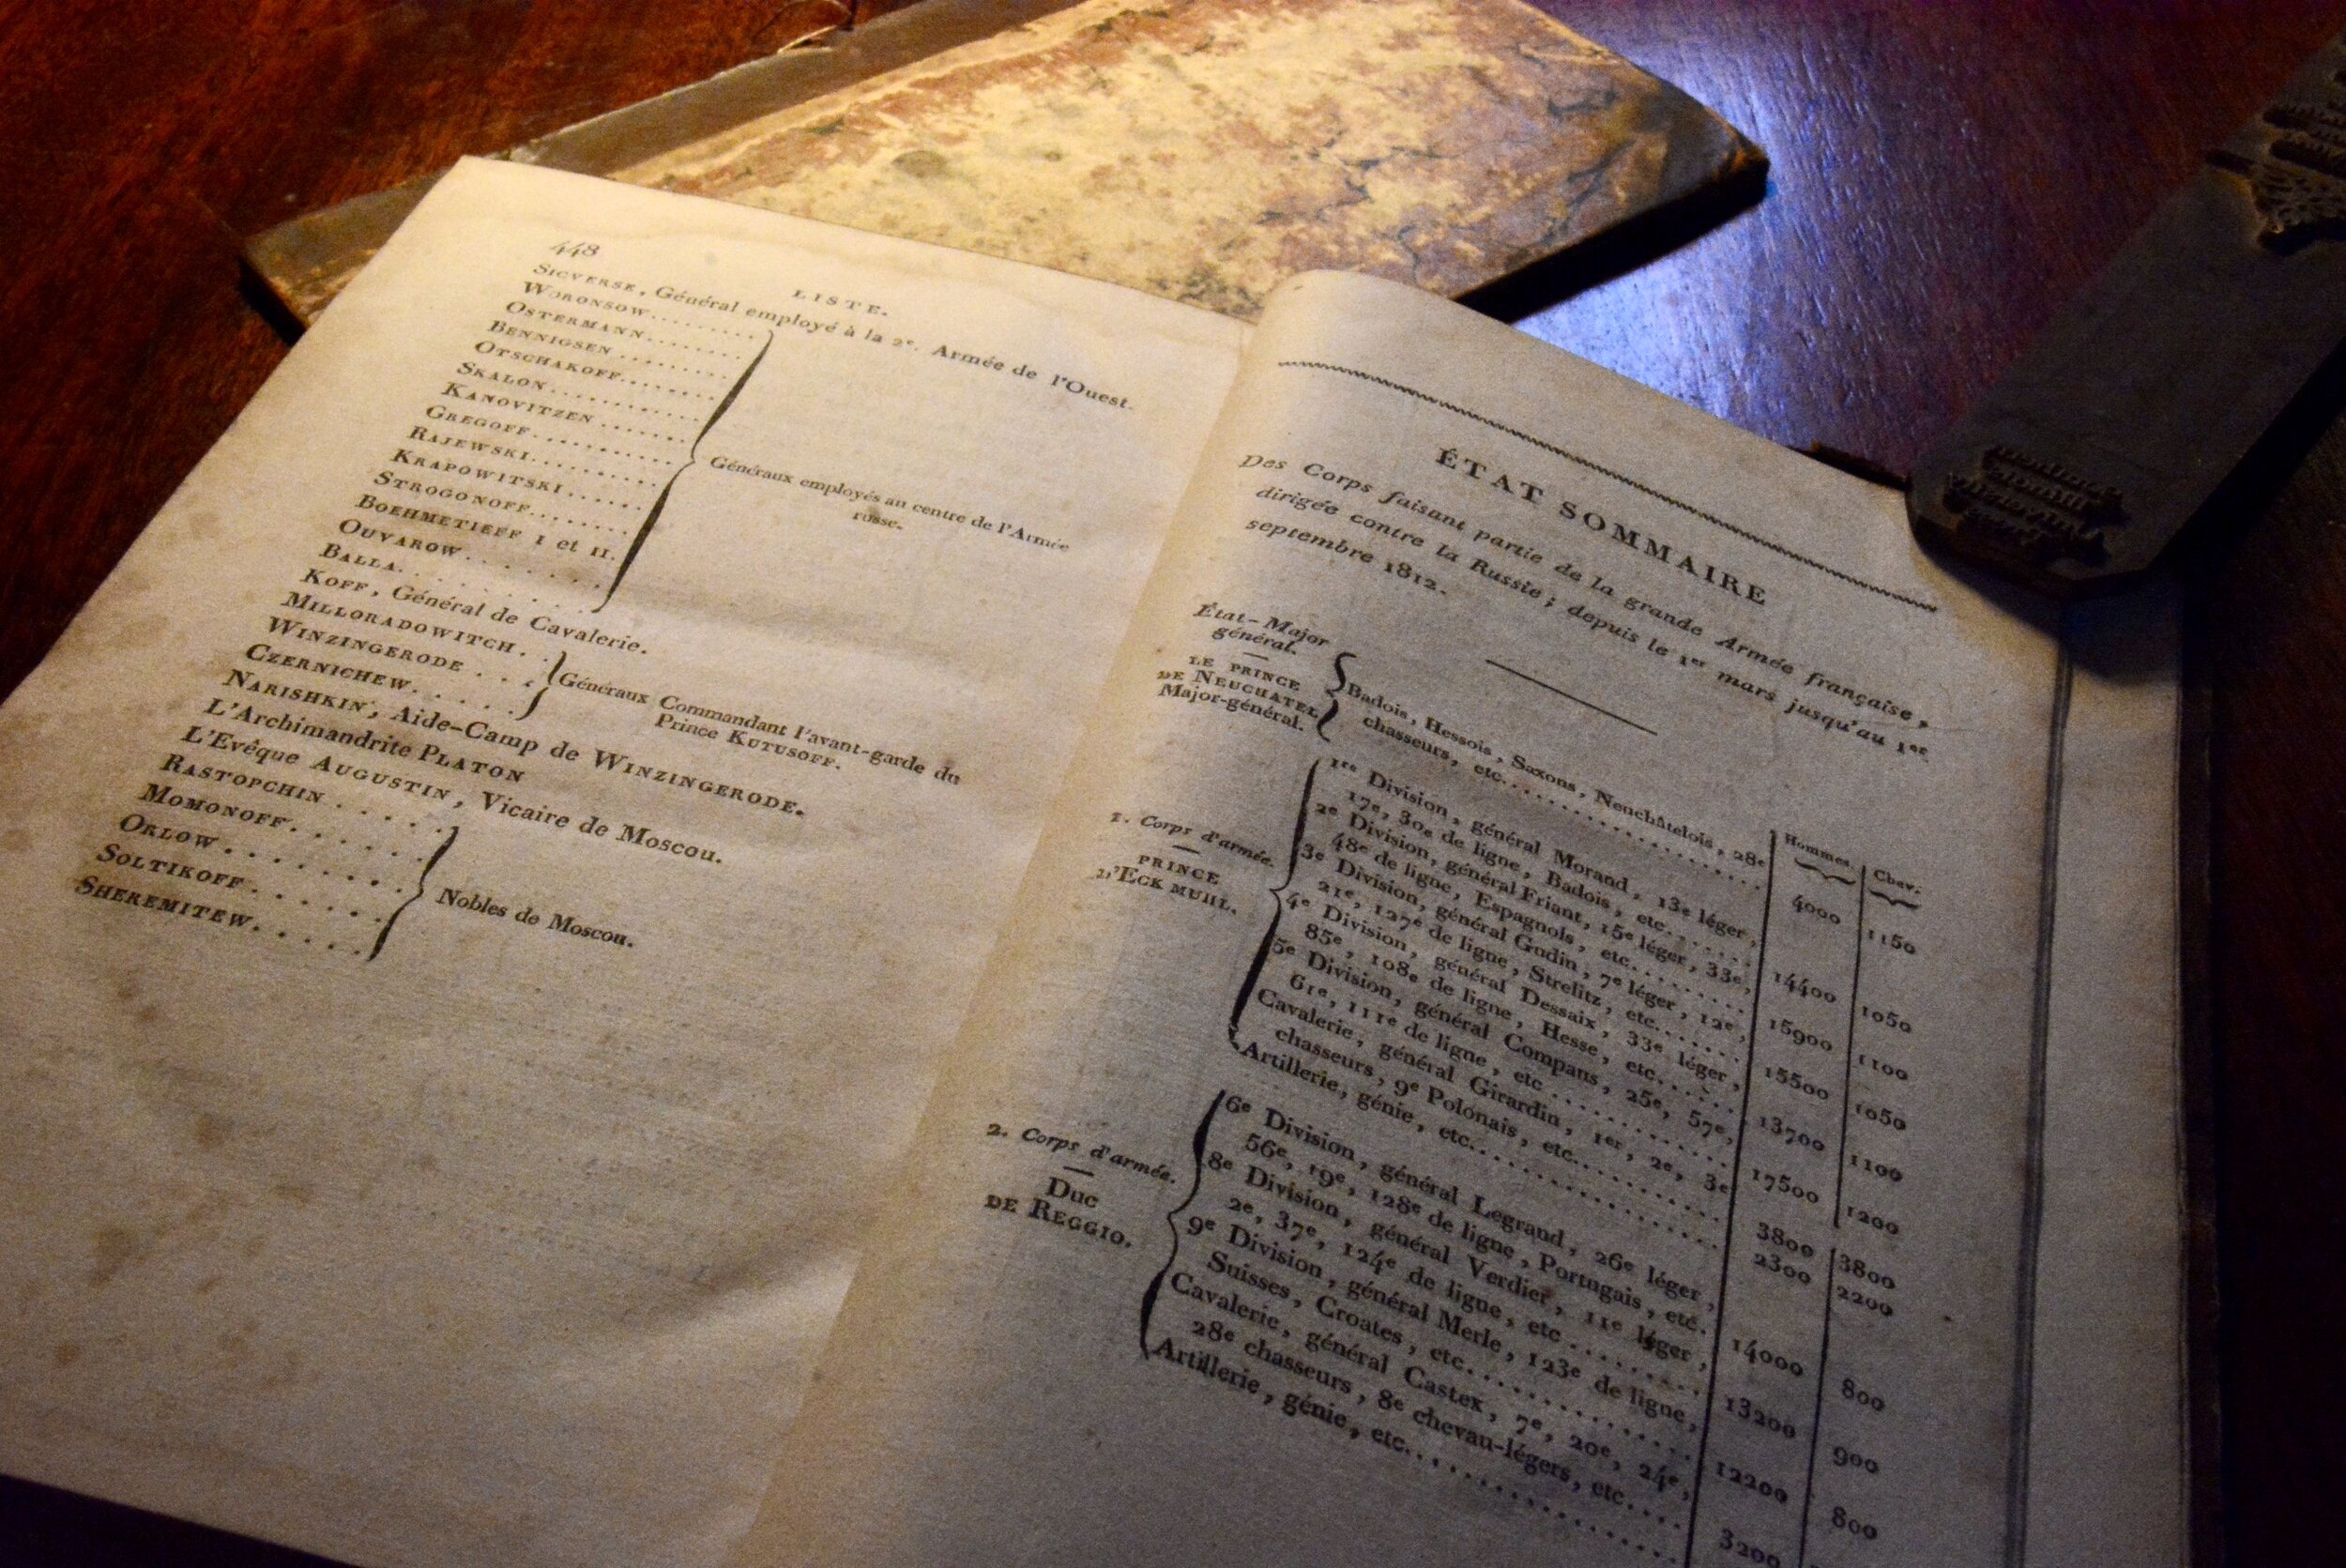 448
LISTE.
SICVERSE, Général employé à la 2e. Armée de l'Ouest.
WORONSOW.........
OSTERMANN........
BENNIGSEN ........
OTSCHAKOFF.......
SKALON............
KANOVITZEN .......
GREGOFF...........
RAJEWSKI..........
KRAPOWITSKI......
STROGONOFF........
BOEHMETIEFF I et II.
OUVAROW.......
BALLA..........
Généraux employés au centre de l'Armée
russe.
KOFF, Général de Cavalerie.
MILLORADOWITCH...
WINZINGERODE ....
CZERNICHEW......
Généraux Commandant l'avant-garde du
Prince KUTUSOFF.
NARISHKIN, Aide-Camp de WINZINGERODE.
L'Archimandrite PLATON
L'Evêque AUGUSTIN, Vicaire de Moscou.
RASTOPCHIN .....
MOMONOFF.......
ORLOW..........
SOLTIKOFF.......
SHEREMITEW......
Nobles de Moscou.
ÉTAT SOMMAIRE
Des Corps faisant partie de la grande Armée française,
dirigée contre la Russie; depuis le 1er mars jusqu'au 1er
septembre 1812.
Hommes. Chev.
État-Major
général.
LE PRINCE
DE NEUCHATEL
Major-général.
Badois, Hessois, Saxons, Neuchâtelois, 28e
chasseurs, etc............... 4000 1150
1. Corps d'armée.
PRINCE
D'ECKMUHL.
1re Division, général Morand, 13e léger,
17e, 30e de ligne, Badois, etc....... 14400 1050
2e Division, général Friant, 15e léger, 33e,
48e de ligne, Espagnols, etc........ 15900 1100
3e Division, général Gudin, 7e léger, 12e,
21e, 127e de ligne, Strelitz, etc....... 15500 1050
4e Division, général Dessaix, 33e léger,
85e, 108e de ligne, Hesse, etc...... 13700 1100
5e Division, général Compans, 25e, 57e,
61e, 111e de ligne, etc............ 17500 1200
Cavalerie, général Girardin, 1er, 2e, 3e
chasseurs, 9e Polonais, etc......... 3800 3800
Artillerie, génie, etc.............. 2300 2200
2. Corps d'armée.
DUC
DE REGGIO.
6e Division, général Legrand, 26e léger,
56e, 19e, 128e de ligne, Portugais, etc. 14000 800
8e Division, général Verdier, 11e léger,
2e, 37e, 124e de ligne, etc......... 13200 900
9e Division, général Merle, 123e de ligne,
Suisses, Croates, etc............. 12200 800
Cavalerie, général Castex, 7e, 20e, 24e,
28e chasseurs, 8e chevau-légers, etc.... 3200
Artillerie, génie, etc..............